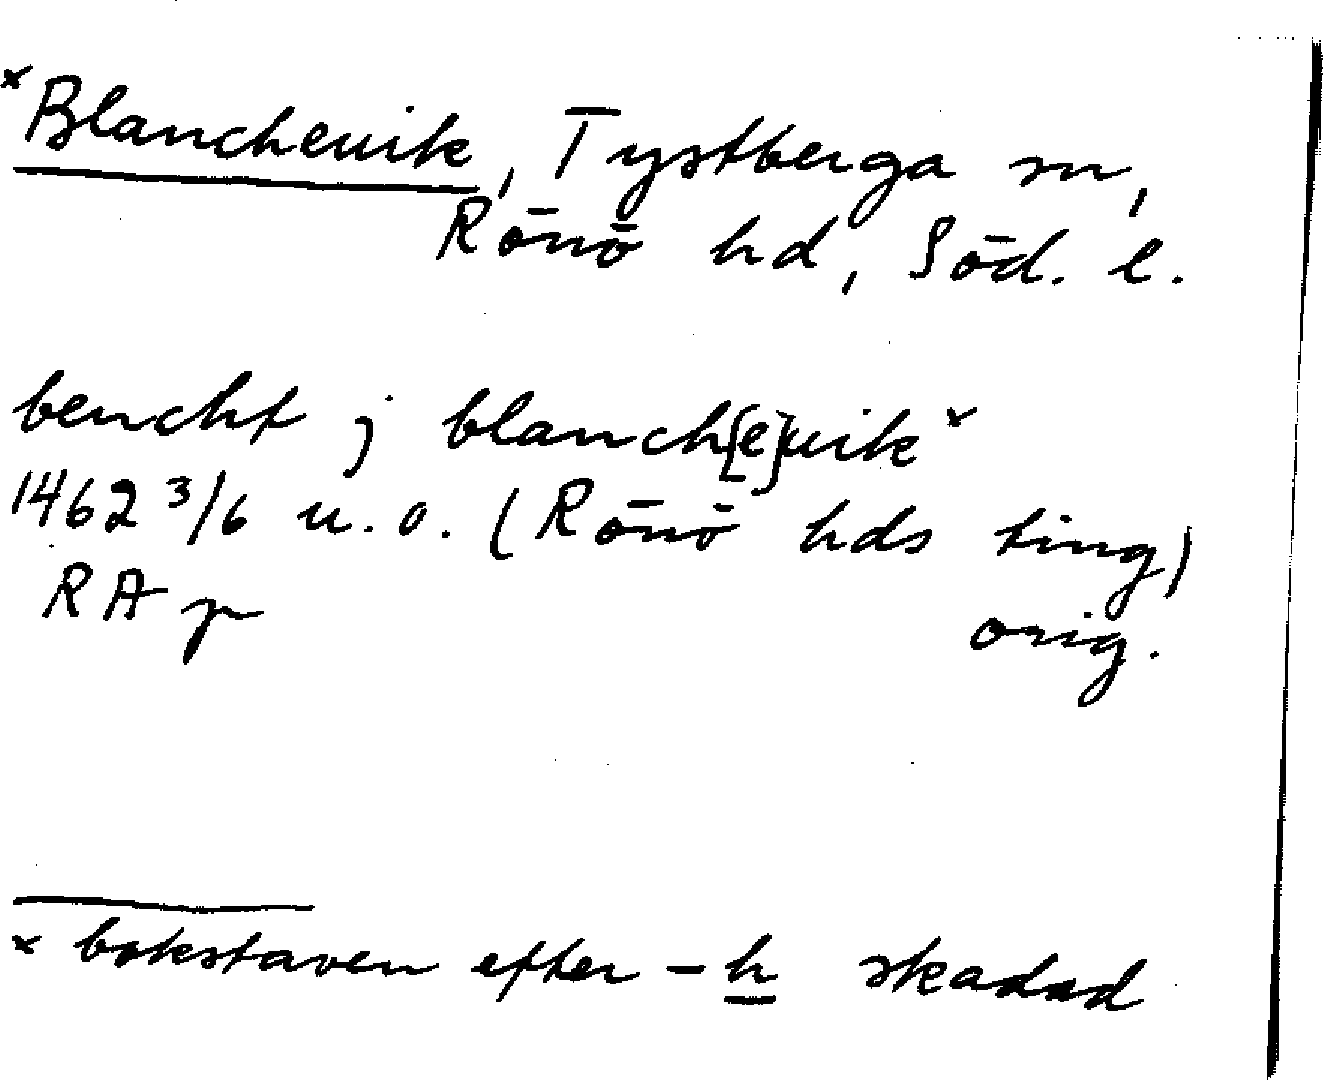 ×Blancheuik, Tystberga sn,
Rönö hd, Söd. l.
bencht j blanch[e]uik×
1462 3/6 u.o. (Rönö hds ting)
RA p orig.
× bokstaven efter -h skadad